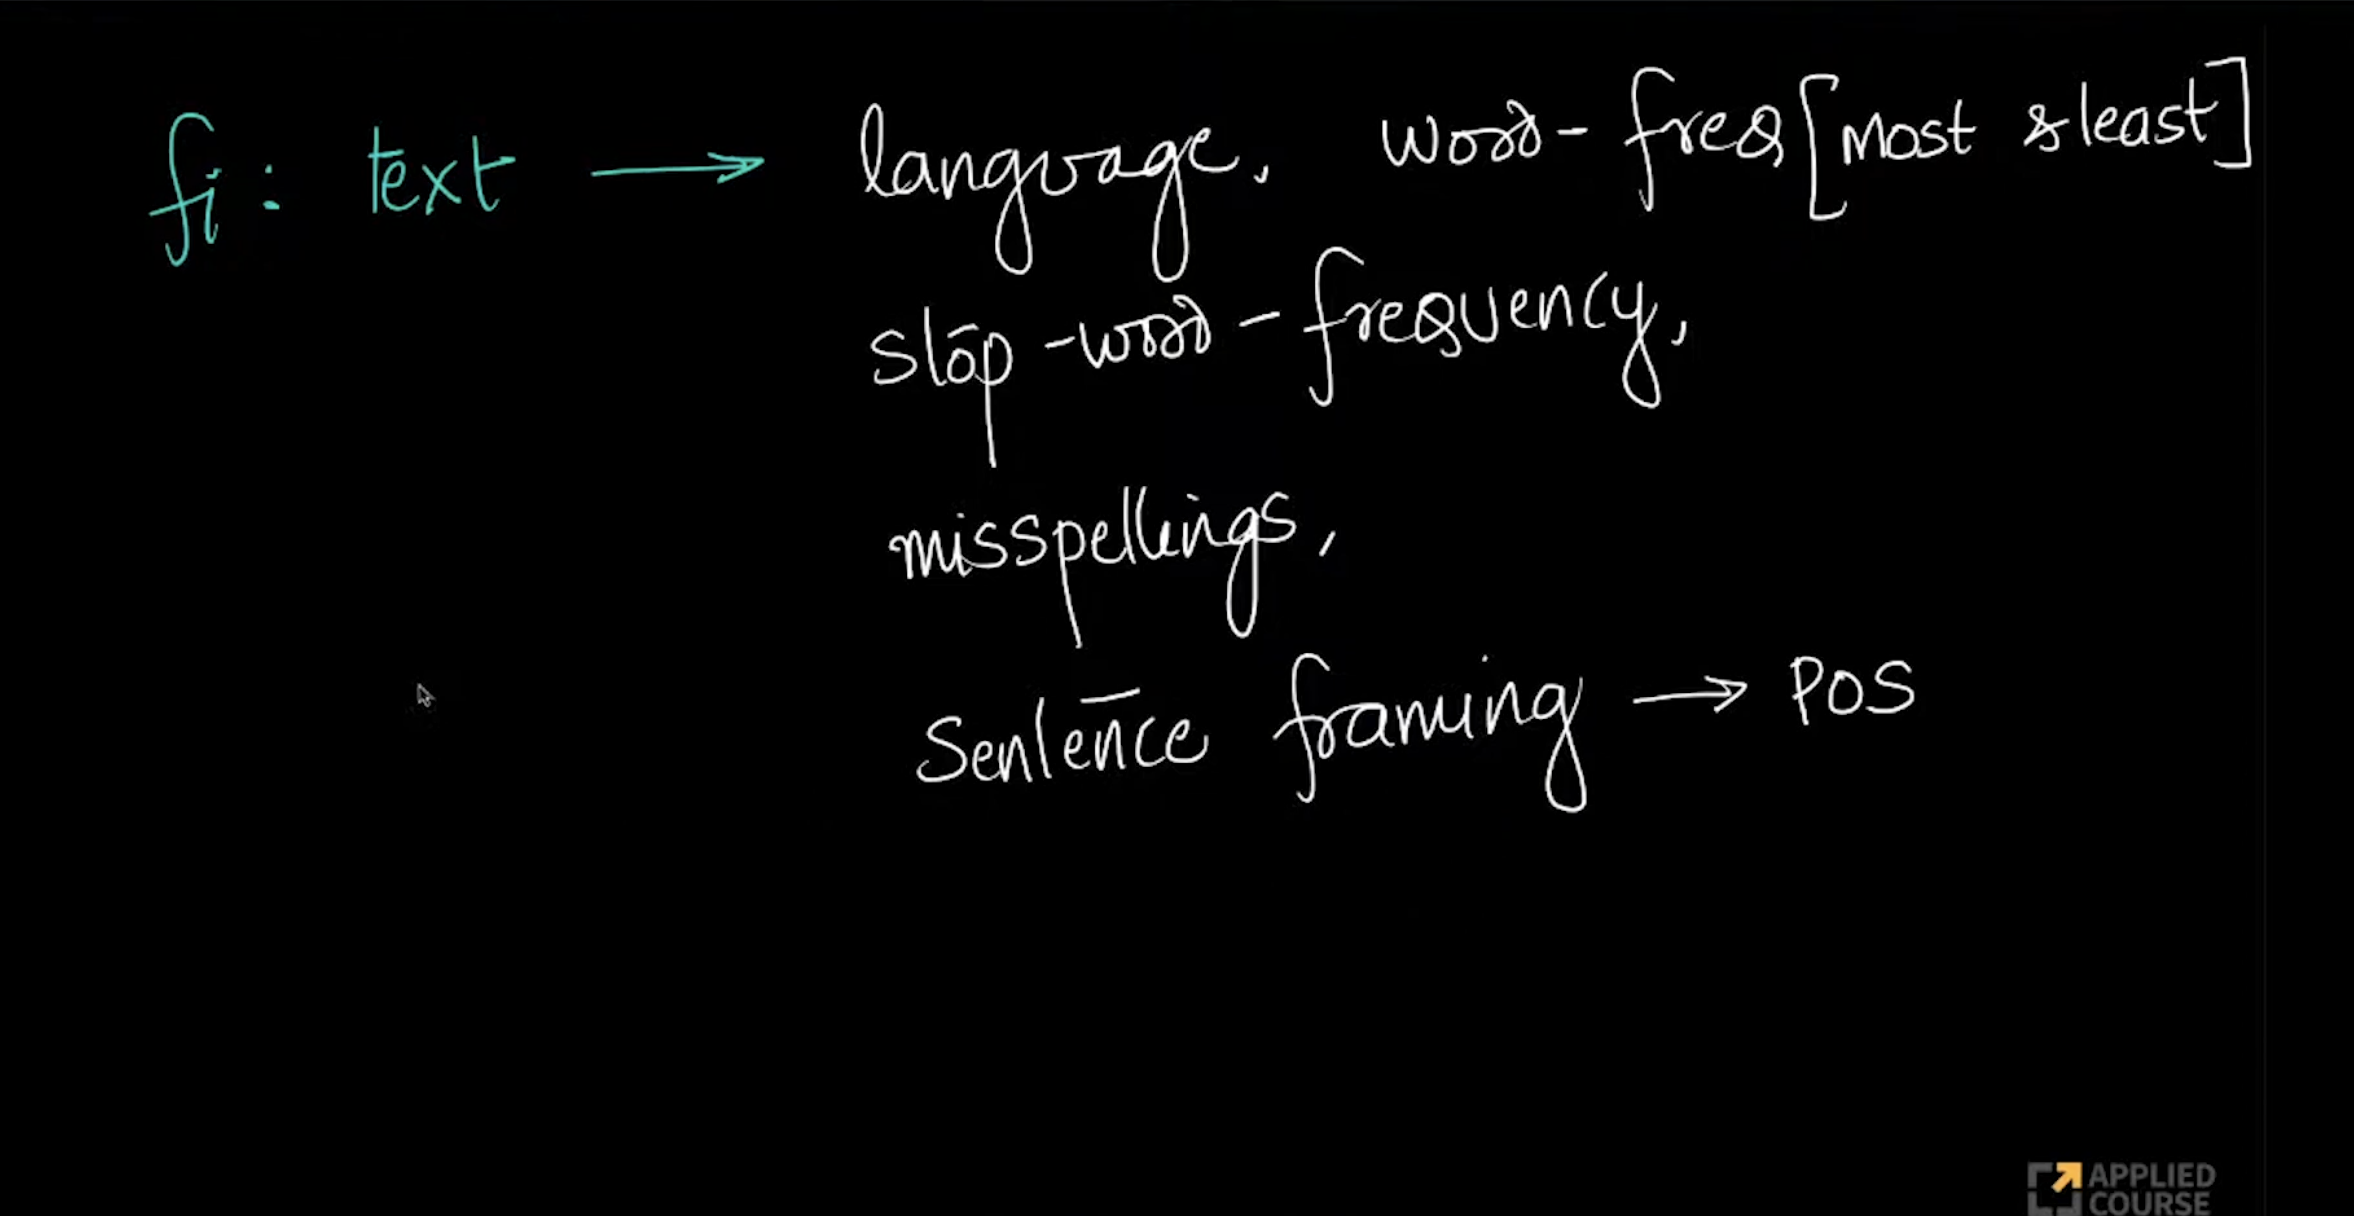 fi: text → language, word-freq[most & least]
stop-word-frequency,
misspellings,
Sentence framing → POS
APPLIED
COURSE